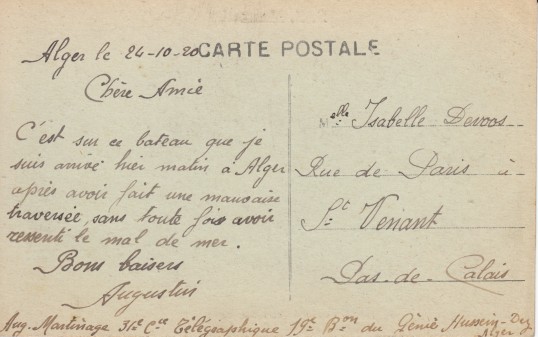 Alger le 24-10-20
CARTE POSTALE
Chère Amie
C'est sur ce bateau que je
suis arrivé hier matin à Alger
après avoir fait une mauvaise
traversée, sans toute fois avoir
ressenti le mal de mer.
Bons baisers
Augustin
Melle Isabelle Devoos
Rue de Paris à
St Venant
Pas-de-Calais
Aug. Martinage 31e Cie Télégraphique 19e Bon du Génie Hussein-Dey
Alger